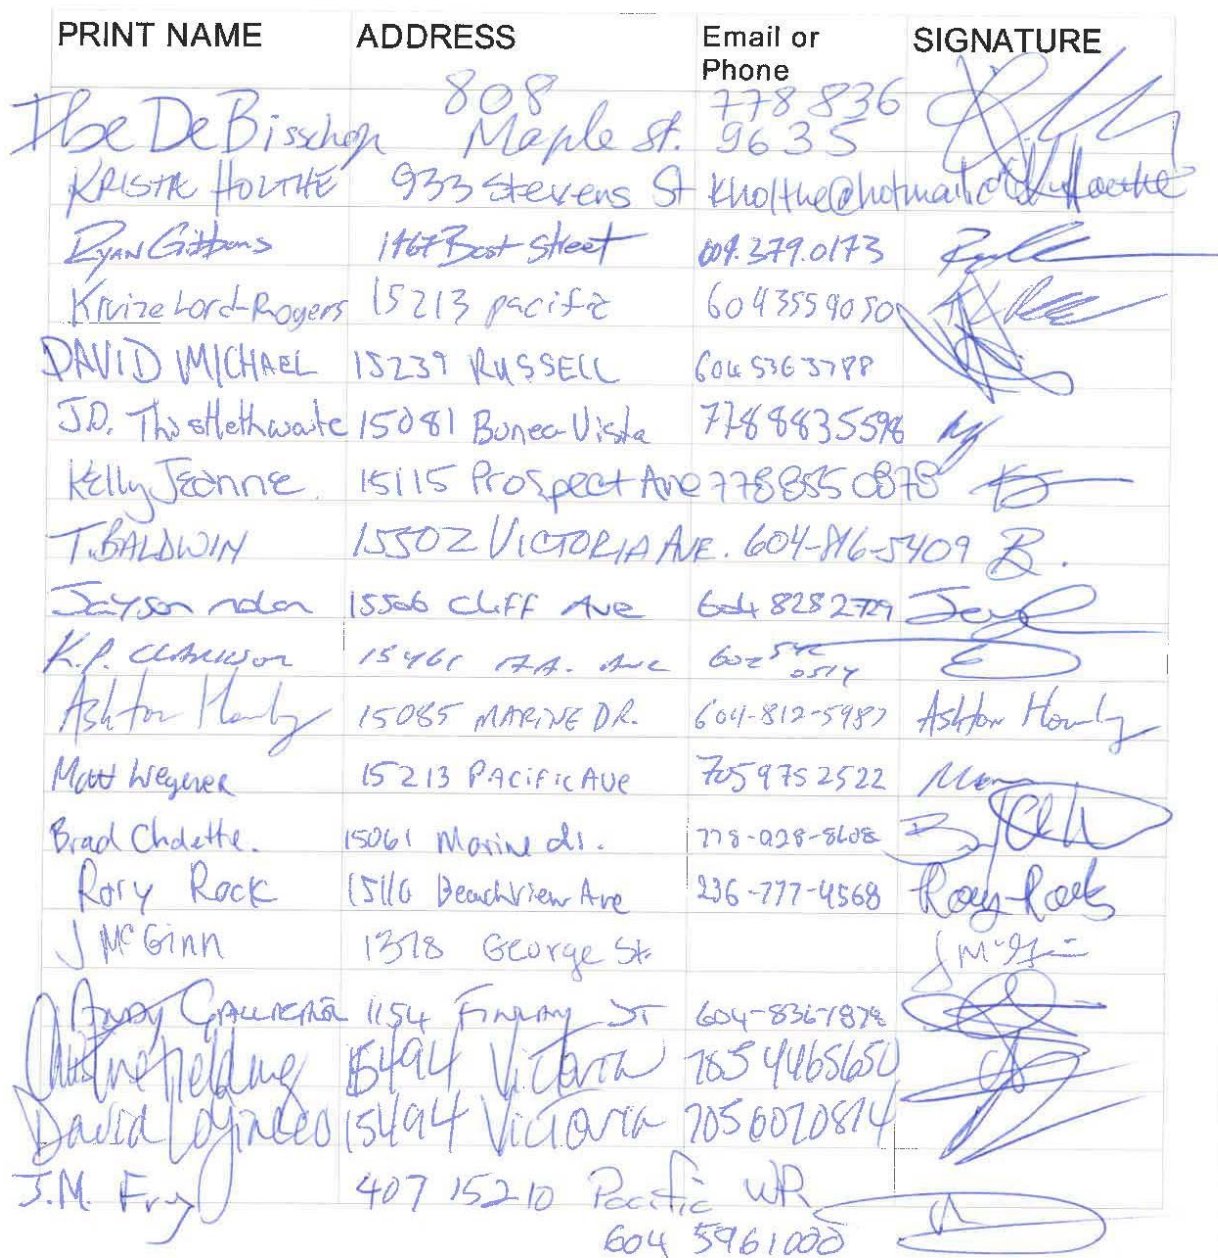 PRINT NAME ADDRESS Email or Phone SIGNATURE
Ilse De Bisschop 808 Maple St. 778 836 9635
KRISTIE HOLTHE 933 Stevens St kholthe@hotmail.c
Ryan Gibbons 1467 Best Street 604.379.0173
Lord-Rogers 15213 pacific 604 355 9050
DAVID MICHAEL 15239 RUSSELL 604 536 3788
J.D. Thistlethwaite 15081 Bunea Vista 778 8835598
Kelly Jeanne. 15115 Prospect Ave 778 855 0878
T. BALDWIN 15502 VICTORIA AVE. 604-816-5409 B.
Jayson nolan 15506 Cliff Ave 604 828 2729
K.P. 1546 Ave
Ashton 15085 MARINE DR. 604-812-5987 Ashton
Matt Wegner 15213 PACIFIC AVE 705 975 2522
Brad Chdette. 15061 Marine dr. 778-028-8608
Rory Rock 15110 Beachview Ave 236-777-4568 Rory Rock
J McGinn 1378 George St. J McG
Andy 1154 Finlay ST 604-836-7878
15494 Victoria 705 4465650
David 15494 Victoria 705 6070874
J.M. Fry 407 15210 Pacific WR
604 5961000